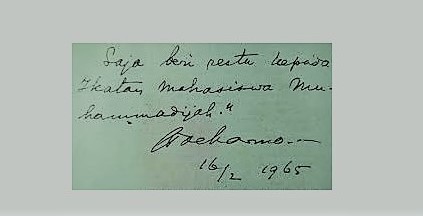 Saja beri restu kepada
Ikatan Mahasiswa Mu-
hammadijah."
Soekarno
16/2 1965